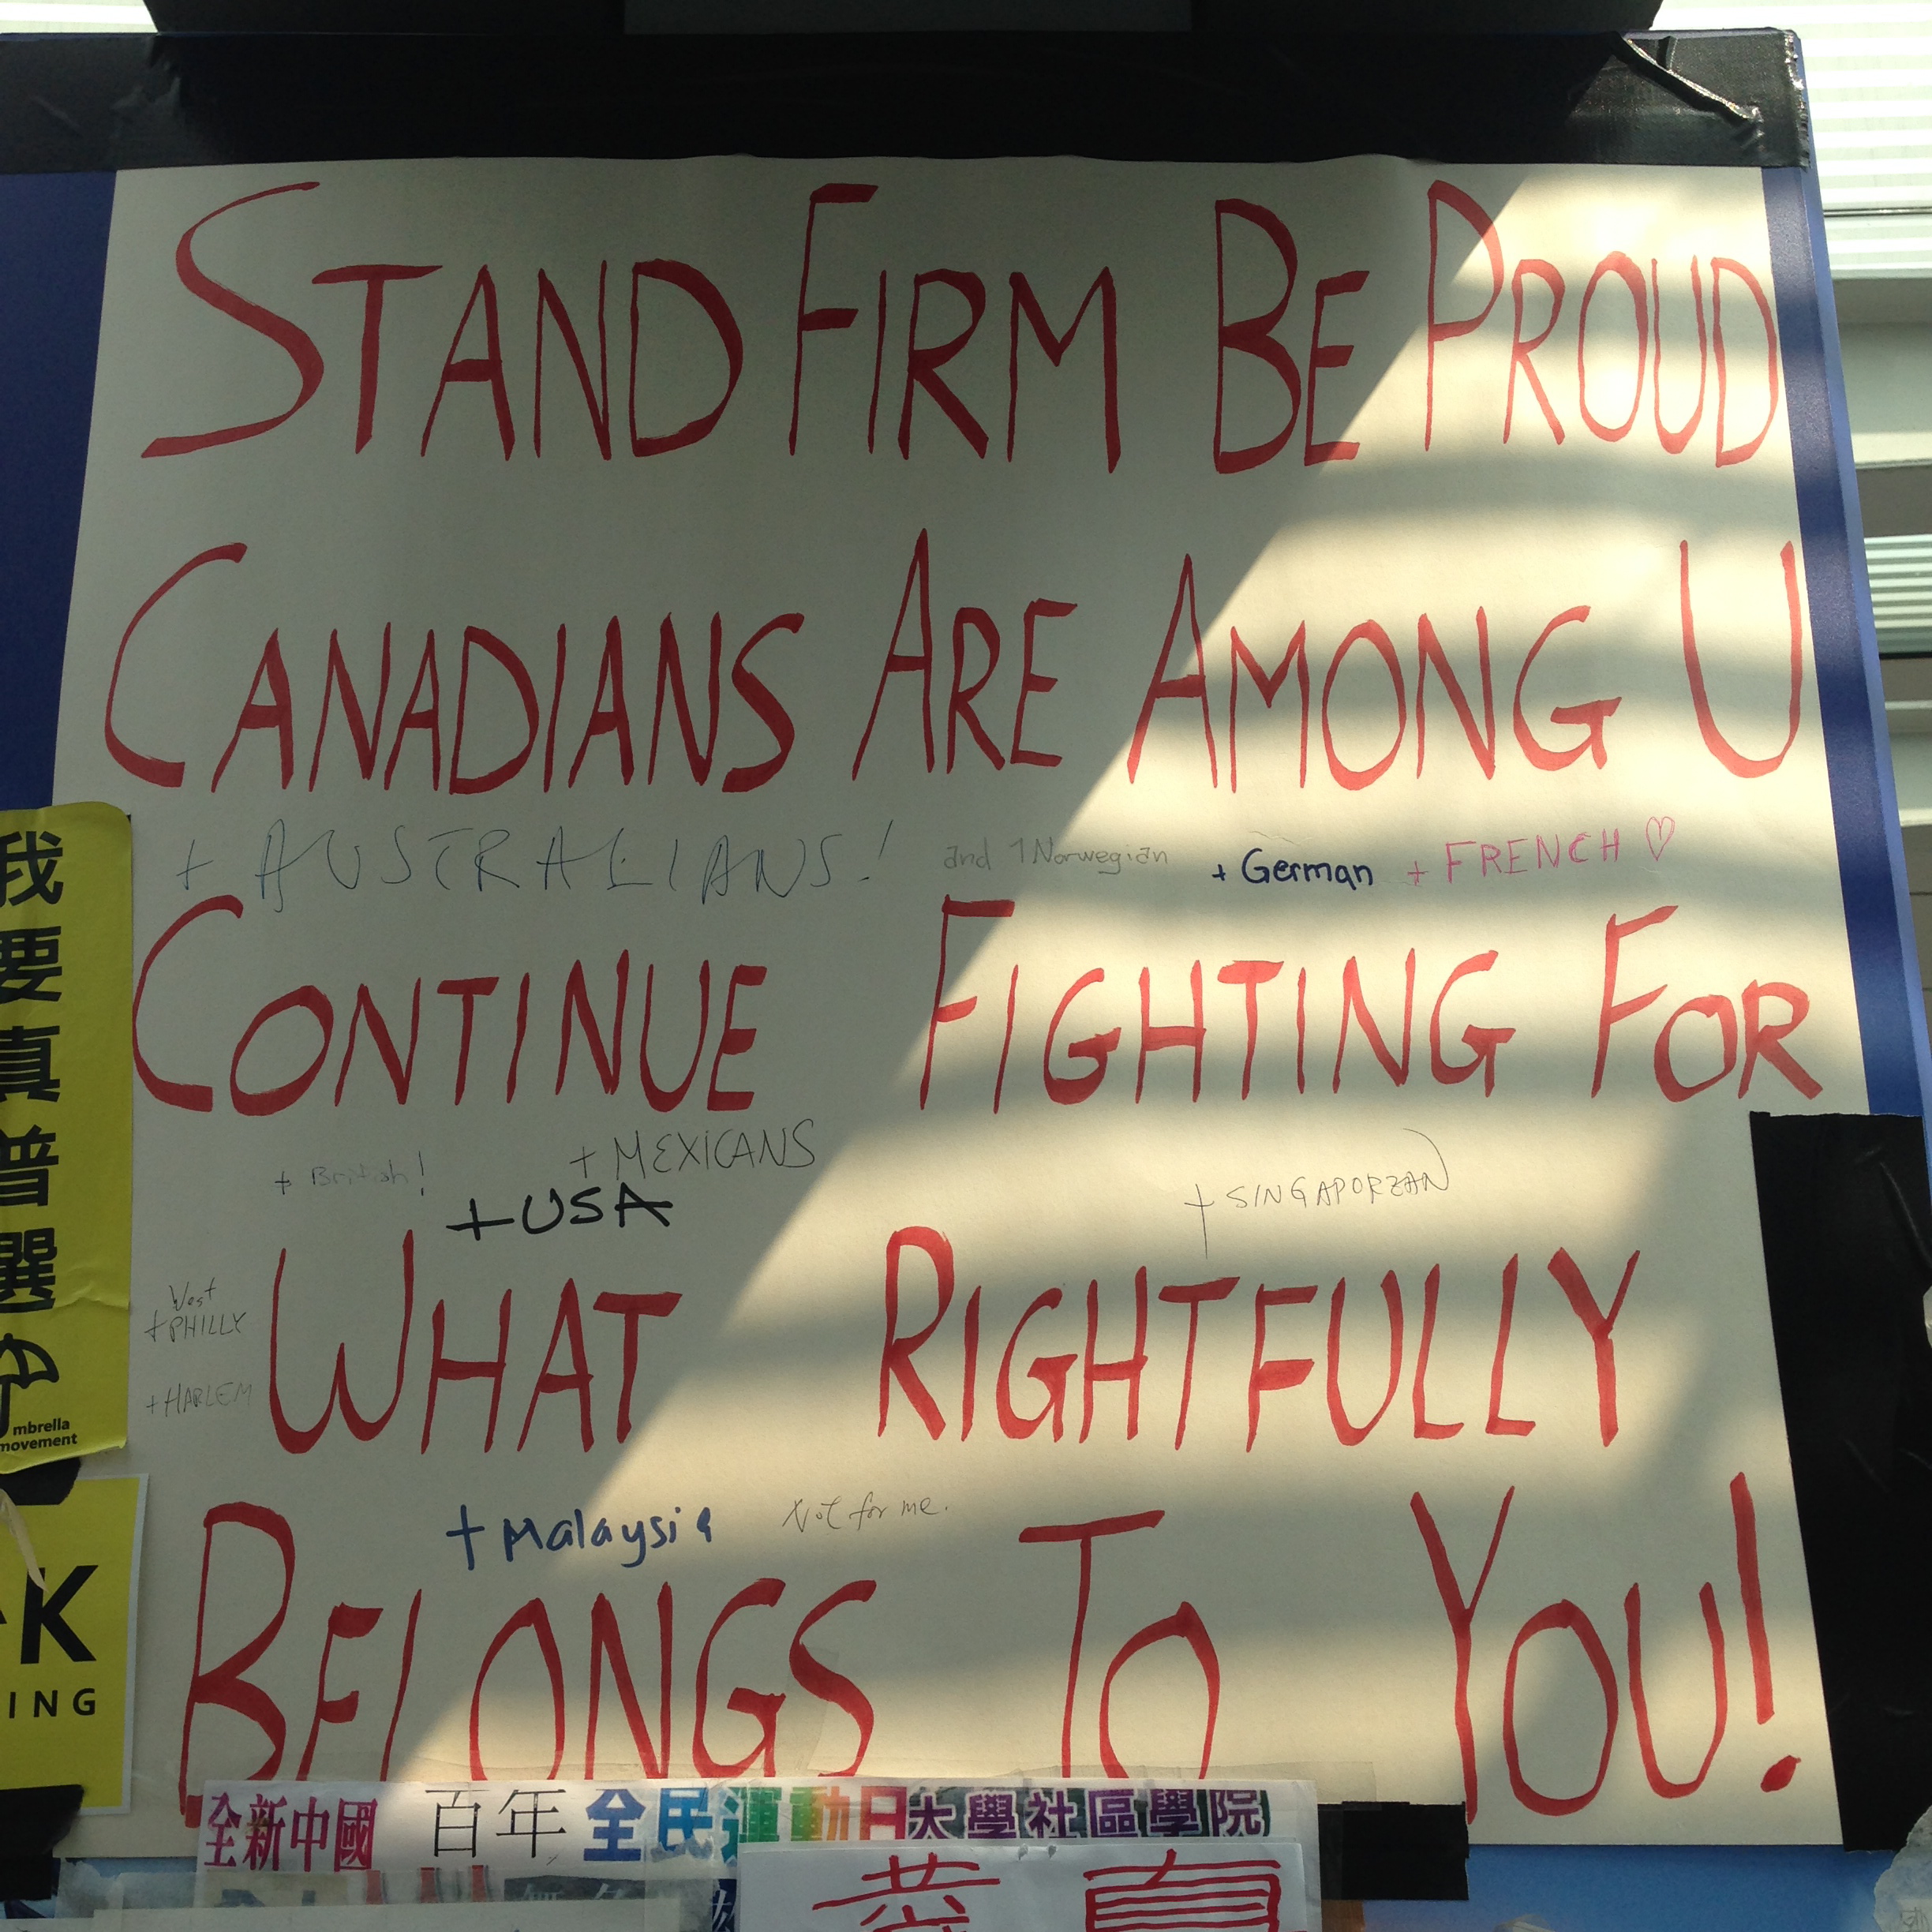 STAND FIRM BE PROUD
CANADIANS ARE AMONG U
+ AUSTRALIANS! and 1 Norwegian + German + FRENCH ♡
CONTINUE FIGHTING FOR
+ British! + MEXICANS
+ USA
+ SINGAPOREAN
WHAT RIGHTFULLY
West
+ PHILLY
+ HARLEM
+ Malaysia Not for me.
BELONGS TO YOU!
我要真普選
mbrella
movement
K
ING
全新中國 百年 全民運動日大學社區學院
真